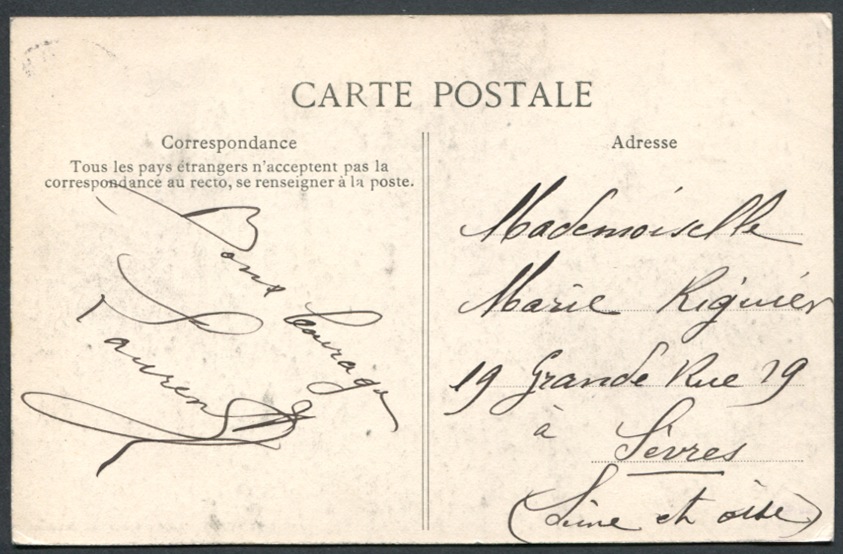 CARTE POSTALE
Correspondance
Tous les pays étrangers n'acceptent pas la
correspondance au recto, se renseigner à la poste.
Bons
Courage
Laurent
Adresse
Mademoiselle
Marie Riguier
19 Grande Rue 19
à Sèvres
(Seine et oise)